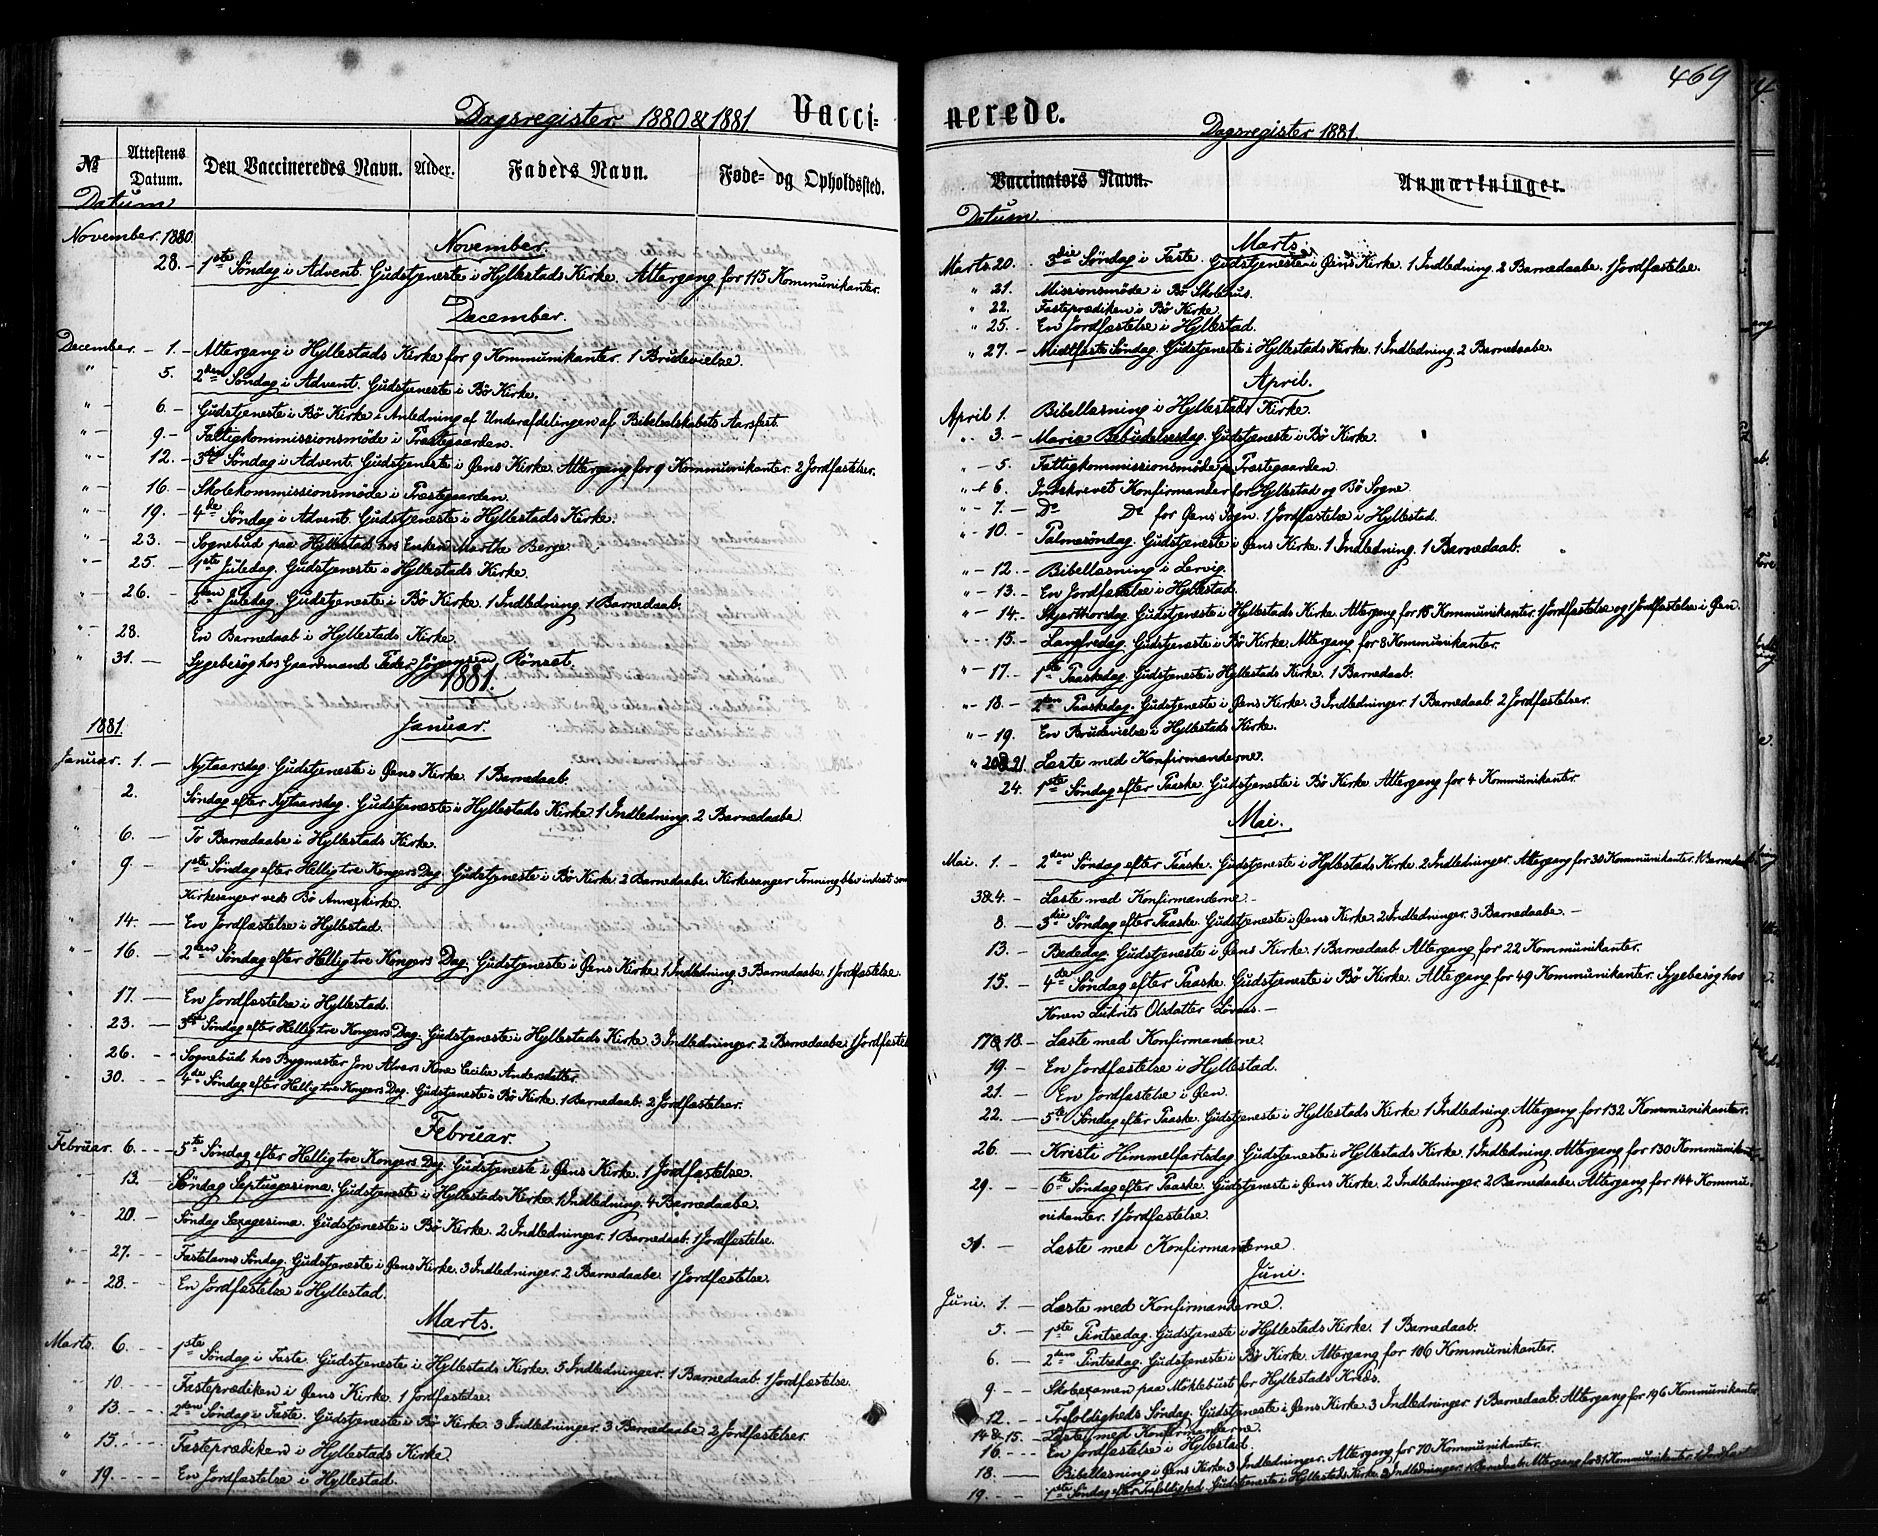 469
Dagsregister 1880 & 1881.
Vacci-
№
Attestens Datum.
Den Vaccineredes Navn.
Alder.
Faders Navn.
Føde- og Opholdssted.
Datum
November. 1880.
November.
28. - 1ste Søndag i Advent. Gudstjeneste i Hyllestads Kirke. Altergang for 115 Kommunikanter.
December.
December. - 1. - Altergang i Hyllestads Kirke for 9 Kommunikanter. 1 Brudevielse.
" - 5. 2den Søndag i Advent. Gudstjeneste i Bø Kirke.
" - 6. - Gudstjeneste i Bø Kirke i Anledning af Underafdelingen af Bibelselskabets Aarsfest.
" - 9. - Fattigkommissionsmøde i Præstegaarden.
" - 12. - 3die Søndag i Advent. Gudstjeneste i Øens Kirke. Altergang for 9 Kommunikanter. 2 Jordfæstelser.
" - 16. - Skolekommissionsmøde i Præstegaarden.
" - 19. - 4de Søndag i Advent. Gudstjeneste i Hyllestads Kirke.
" - 23. - Sognebud paa Hyllestad hos Enken Marthe Berge.
" - 25. - 1ste Juledag. Gudstjeneste i Hyllestads Kirke.
" - 26. - 2den Juledag. Gudstjeneste i Bø Kirke. 1 Indledning. 1 Barnedaab.
" - 28. En Barnedaab i Hyllestads Kirke.
" 31. - Sygebesøg hos Gaardmand Peder Jørgensen Rønset.
1881.
1881.
Januar.
Januar. 1. - Nytaarsdag. Gudstjeneste i Øens Kirke. 1 Barnedaab.
2. Søndag efter Nytaarsdag. Gudstjeneste i Hyllestads Kirke. 1 Indledning. 2 Barnedaabe.
" 6. - To Barnedaabe i Hyllestads Kirke.
" 9 - 1ste Søndag efter Hellig tre Kongers Dag. Gudstjeneste i Bø Kirke. 2 Barnedaabe. Kirkesanger Tonning blev indsat som
Kirkesanger ved Bø Annexkirke.
" 14. - En Jordfæstelse i Hyllestad.
" - 16. - 2den Søndag efter Hellig tre Kongers Dag. Gudstjeneste i Øens Kirke. 1 Indledning. 3 Barnedaabe. 1 Jordfæstelse.
" 17. - En Jordfæstelse i Hyllestad.
23. - 3die Søndag efter Hellig tre Kongers Dag. Gudstjeneste i Hyllestads Kirke. 3 Indledninger. 2 Barnedaabe. 1 Jordfæstel
26. - Sognebud hos Bygmester Jon Alvers Kone Cecilie Andersdatter.
30. - 4de Søndag efter Hellig tre Kongers Dag. Gudstjeneste i Bø Kirke. 1 Barnedaab. 2 Jordfæstelser.
Februar.
Februar. 6. - 5te Søndag efter Hellig tre Kongers Dag. Gudstjeneste i Øens Kirke. 1 Jordfæstelse.
" - 13. - Søndag Septuagesima. Gudstjeneste i Hyllestads Kirke. 1 Indledning. 4 Barnedaabe.
" - 20. - Søndag Sexagesima. Gudstjeneste i Bø Kirke. 2 Indledninger. 1 Barnedaab. 1 Jordfæstelse.
" - 27. - Fastelavns Søndag. Gudstjeneste i Øens Kirke. 3 Indledninger. 2 Barnedaabe. 1 Jordfæstelse.
" - 28. - En Jordfæstelse i Hyllestad.
Marts.
Marts. 6. - 1ste Søndag i Faste. Gudstjeneste i Hyllestads Kirke. 5 Indledninger. 1 Barnedaab. 1 Jordfæstelse.
" 10. - Fasteprædiken i Øens Kirke. 1 Jordfæstelse.
" 13. - 2den Søndag i Faste. Gudstjeneste i Bø Kirke. 3 Indledninger. 3 Barnedaabe. 2 Jordfæstelser.
" 15. - Fasteprædiken i Hyllestads Kirke.
" 19. - En Jordfæstelse i Hyllestad.
nerede.
Dagsregister 1881.
Vaccinators Navn.
Anmærkninger.
Datum.
Marts.
Marts. 20. 3die Søndag i Faste. Gudstjeneste i Øens Kirke. 1 Indledning. 2 Barnedaabe. 1 Jordfæstelse.
" 21. Missionsmøde i Bø Skolehus.
" 22. Fasteprædiken i Bø Kirke.
" 25. - En Jordfæstelse i Hyllestad.
" 27. - Midtfaste Søndag. Gudstjeneste i Hyllestads Kirke. 1 Indledning. 2 Barnedaabe.
April.
April 1. Bibellæsning i Hyllestads Kirke.
" 3. - Mariæ Bebudelsesdag. Gudstjeneste i Bø Kirke.
" - 5. Fattigkommissionsmøde paa Præstegaarden.
" - 6. Indskrevet Konfirmander for Hyllestad og Bø Sogne.
" - 7. - Do Do for Øens Sogn. 1 Jordfæstelse i Hyllestad.
" - 10. Palmesøndag. Gudstjeneste i Øens Kirke. 1 Indledning. 1 Barnedaab.
" - 12. - Bibellæsning i Lervig.
" - 13. - En Jordfæstelse i Hyllestad.
" - 14. - Skjærthorsdag. Gudstjeneste i Hyllestads Kirke. Altergang for 18 Kommunikanter. 1 Jordfæstelse og 1 Jordfæstelse i Øen.
" - 15. - Langfredag. Gudstjeneste i Bø Kirke. Altergang for 8 Kommunikanter.
" - 17. - 1ste Paaskedag. Gudstjeneste i Hyllestads Kirke. 1 Barnedaab.
" - 18. - 2den Paaskedag. Gudstjeneste i Øens Kirke. 3 Indledninger. 1 Barnedaab. 2 Jordfæstelser.
" - 19. En Brudevielse i Hyllestads Kirke.
" 20 & 21. Læste med Konfirmanderne.
24. 1ste Søndag efter Paaske. Gudstjeneste i Bø Kirke. Altergang for 4 Kommunikanter.
Mai.
Mai. 1. - 2den Søndag efter Paaske. Gudstjeneste i Hyllestads Kirke. 2 Indledninger. Altergang for 30 Kommunikanter. 1 Barnedaab.
3 & 4. - Læste med Konfirmanderne. -
8. - 3die Søndag efter Paaske. Gudstjeneste i Øens Kirke. 2 Indledninger. 3 Barnedaabe. -
13. - Bededag. Gudstjeneste i Øens Kirke. 1 Barnedaab. Altergang for 22 Kommunikanter.
15. - 4de Søndag efter Paaske. Gudstjeneste i Bø Kirke. Altergang for 49 Kommunikanter. Sygebesøg hos
Konen Lukrits Olsdatter
17 & 18. - Læste med Konfirmanderne.
19. - En Jordfæstelse i Hyllestad.
21. - En Jordfæstelse i Øen.
22. - 5te Søndag efter Paaske. Gudstjeneste i Hyllestads Kirke. 1 Indledning. Altergang for 132 Kommunikanter.
26. - Kristi Himmelfartsdag. Gudstjeneste i Hyllestads Kirke. 1 Indledning. Altergang for 130 Kommunikanter.
29. - 6te Søndag efter Paaske. Gudstjeneste i Øens Kirke. 2 Indledninger. 2 Barnedaabe. Altergang for 144 Kommu-
nikanter. 1 Jordfæstelse.
31. - Læste med Konfirmanderne.
Juni.
Juni. 1. - Læste med Konfirmanderne.
5. - 1ste Pintsedag. Gudstjeneste i Hyllestads Kirke. 1 Barnedaab.
6. - 2den Pintsedag. Gudstjeneste i Bø Kirke. Altergang for 106 Kommunikanter.
9. - Skoleexamen paa Møklebust for Hyllestads Kreds.
12. - Trefoldigheds Søndag. Gudstjeneste i Øens Kirke. 3 Indledninger. 1 Barnedaab. Altergang for 196 Kommunikanter.
14 & 15. - Læste med Konfirmanderne.
16. - En Jordfæstelse i Hyllestad.
18. - Bibellæsning i Øens Kirke. 3 Indledninger. Altergang for 70 Kommunikanter.
19. - 1ste Søndag efter Trefoldighed. Gudstjeneste i Hyllestads Kirke. Indledninger. 1 Barnedaab. Altergang for 81 Kommunikanter.